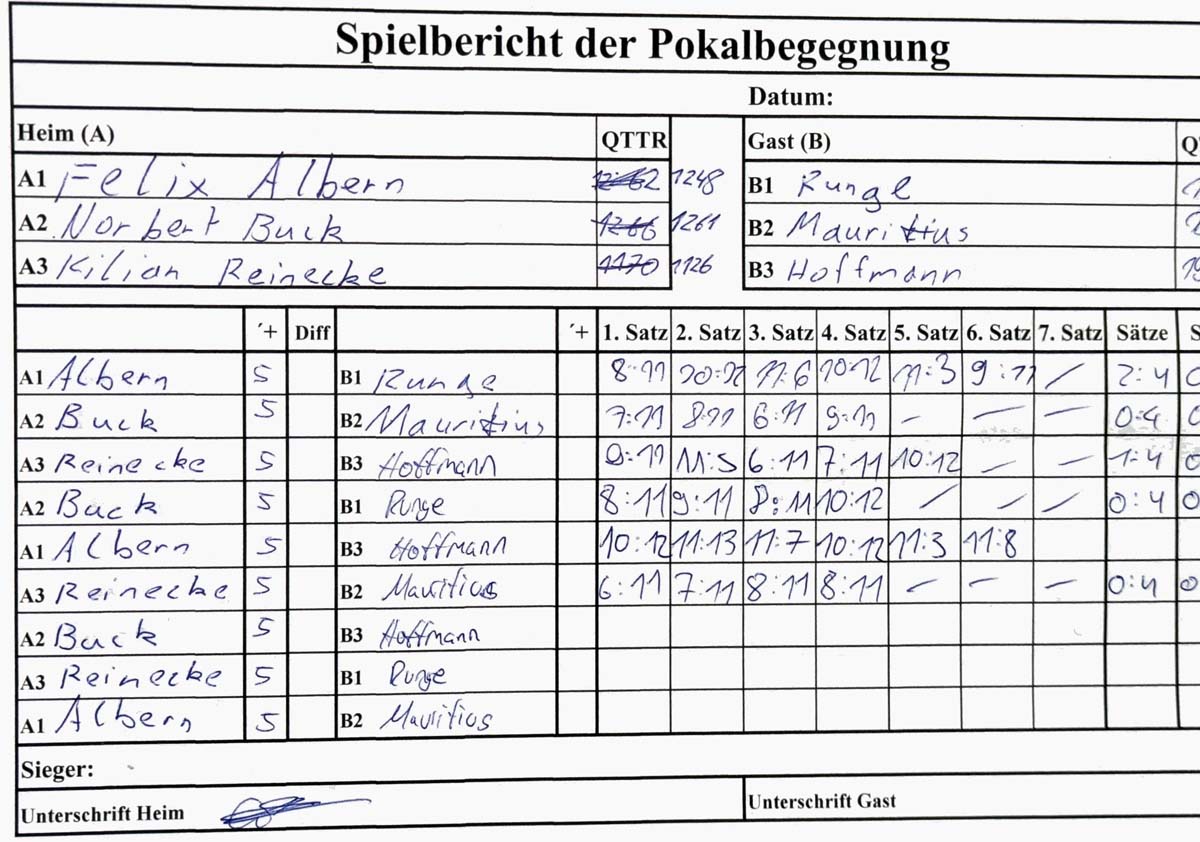 Spielbericht der Pokalbegegnung
Datum:
Heim (A) QTTR Gast (B)
A1 Felix Albern 1262 1248 B1 Runge
A2 Norbert Buck 1266 1261 B2 Mauritius
A3 Kilian Reinecke 1170 1126 B3 Hoffmann
´+ Diff ´+ 1. Satz 2. Satz 3. Satz 4. Satz 5. Satz 6. Satz 7. Satz Sätze
A1 Albern 5 B1 Runge 8:11 10:12 11:6 10:12 11:3 9:11 / 2:4
A2 Buck 5 B2 Mauritius 7:11 8:11 6:11 9:11 – – – 0:4
A3 Reinecke 5 B3 Hoffmann 9:11 11:5 6:11 7:11 10:12 – – 1:4
A2 Buck 5 B1 Runge 8:11 9:11 8:11 10:12 / / / 0:4
A1 Albern 5 B3 Hoffmann 10:12 11:13 11:7 10:12 11:3 11:8
A3 Reinecke 5 B2 Mauritius 6:11 7:11 8:11 8:11 – – – 0:4
A2 Buck 5 B3 Hoffmann
A3 Reinecke 5 B1 Runge
A1 Albern 5 B2 Mauritius
Sieger:
Unterschrift Heim Unterschrift Gast